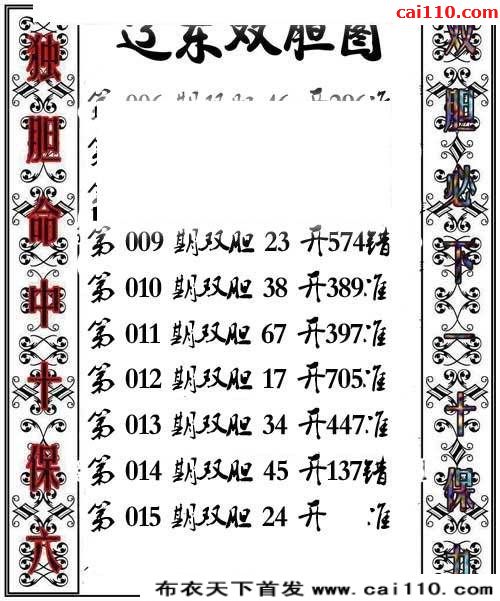 cai110.com
辽东双胆图
第 006 期双胆 46 开296准
第 009 期双胆 23 开574错
第 010 期双胆 38 开389准
第 011 期双胆 67 开397准
第 012 期双胆 17 开705准
第 013 期双胆 34 开447准
第 014 期双胆 45 开137错
第 015 期双胆 24 开 准
独胆命中十保六
双胆必下一十保九
布衣天下首发 www.cai110.com